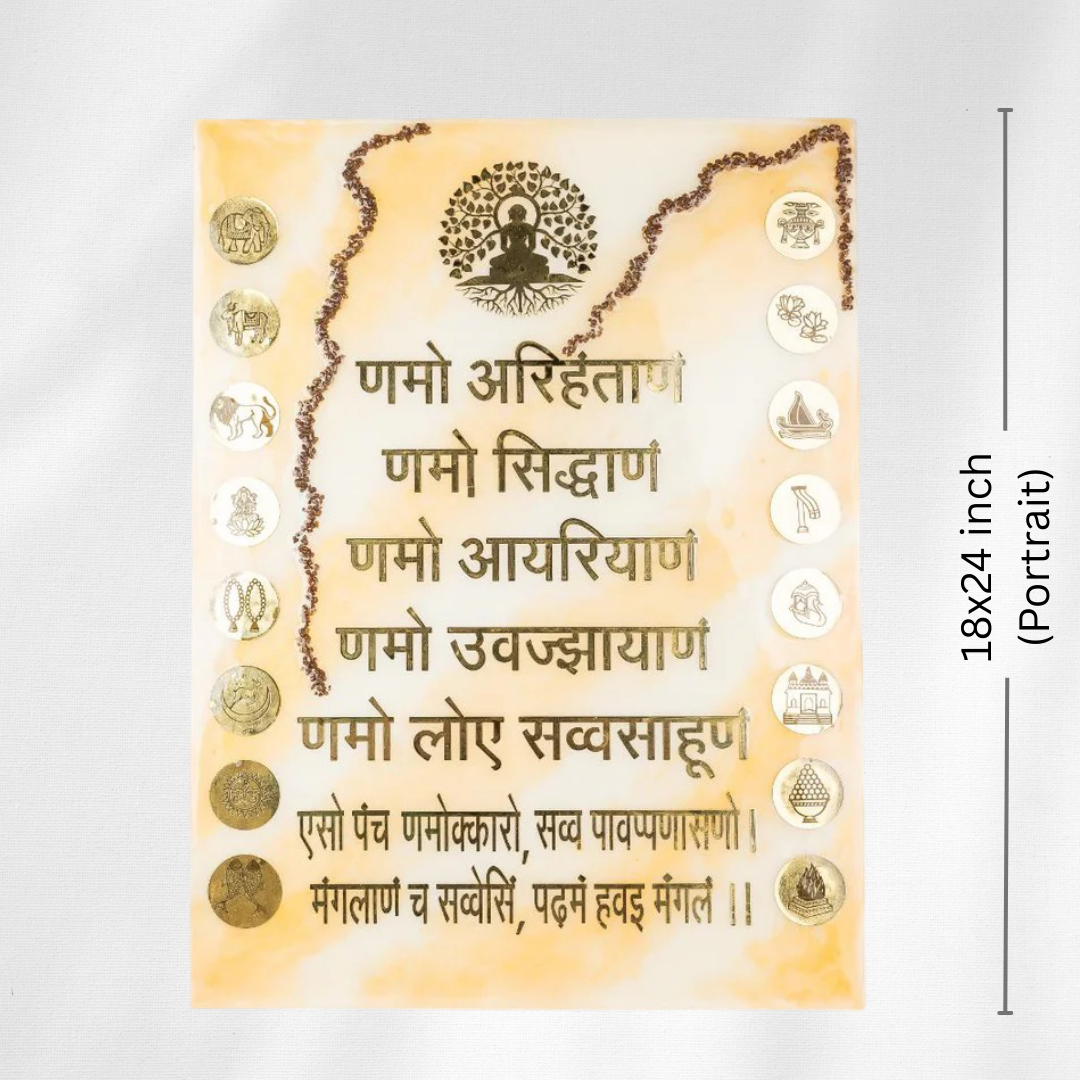 णमो अरिहंताणं
णमो सिद्धाणं
णमो आयरियाणं
णमो उवज्झायाणं
णमो लोए सव्वसाहूणं
एसो पंच णमोक्कारो, सव्व पावप्पणासणो।
मंगलाणं च सव्वेसिं, पढ़मं हवइ मंगलं ।।
18x24 inch
(Portrait)